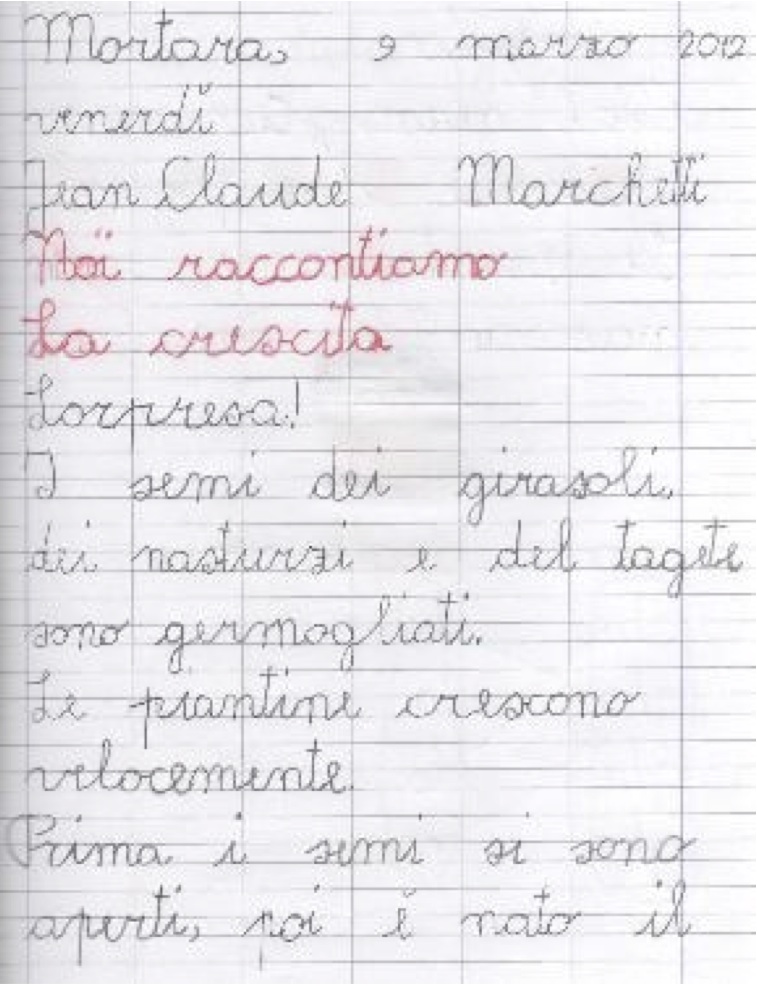 Mortara, 9 marzo 2012
venerdì
Jean Claude Marchetti
Noi raccontiamo
La crescita
Sorpresa!
I semi dei girasoli,
dei nasturzi e del tagete
sono germogliati.
Le piantine crescono
velocemente.
Prima i semi si sono
aperti, poi è nato il